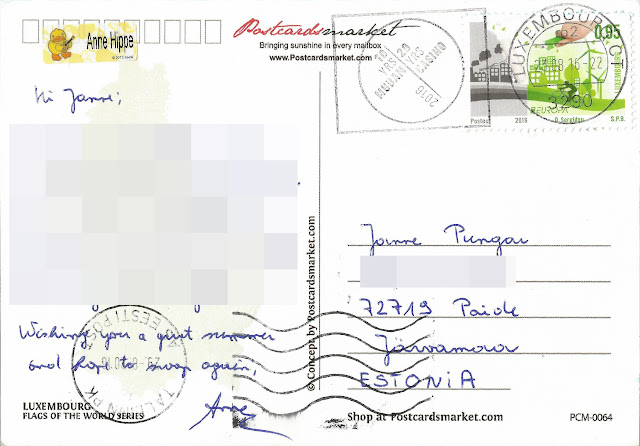 Anne Hippe
Postcardsmarket
Bringing sunshine in every mailbox
www.Postcardsmarket.com
LUXEMBOURG
CASINO
2016
0,95
3290
Postes 2016 EUROPA S.P.B.
Hi Janne;
Janne Pungar
72719 Paide
Järvamaa
ESTONIA
Wishing you a great summer
and hope to swap again,
Anne
EESTI POST
TALLINN
© Concept by Postcardsmarket.com
LUXEMBOURG
FLAGS OF THE WORLD SERIES
Shop at Postcardsmarket.com
PCM-0064